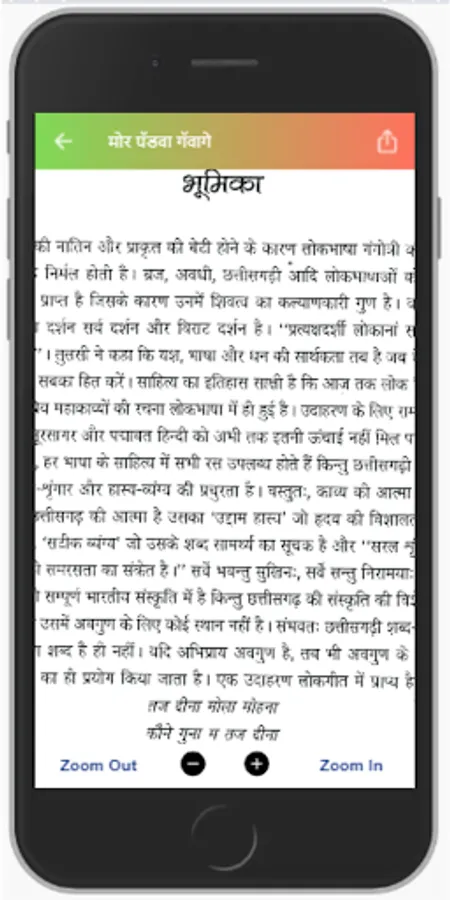 मोर पँडवा गँवागे
भूमिका
की नातिन और प्राकृत की बेटी होने के कारण लोकभाषा गंगोत्री
निर्मल होती है। ब्रज, अवधी, छत्तीसगढ़ी आदि लोकभाषाओं
प्राप्त है जिसके कारण उनमें शिवत्व का कल्याणकारी गुण है।
दर्शन सर्व दर्शन और विराट दर्शन है। ''प्रत्यक्षदर्शी लोकानां
''। तुलसी ने कहा कि यश, भाषा और धन की सार्थकता तब है जब
सबका हित करें। साहित्य का इतिहास साक्षी है कि आज तक लोक
महाकाव्यों की रचना लोकभाषा में ही हुई है। उदाहरण के लिए
सूरसागर और पद्मावत हिन्दी को अभी तक इतनी ऊंचाई नहीं मिल
, हर भाषा के साहित्य में सभी रस उपलब्ध होते हैं किन्तु छत्तीसगढ़ी
-श्रृंगार और हास्य-व्यंग्य की प्रचुरता है। वस्तुतः, काव्य की आत्मा
छत्तीसगढ़ की आत्मा है उसका 'उद्दाम हास्य' जो हृदय की
'सटीक व्यंग्य' जो उसके शब्द सामर्थ्य का सूचक है और ''सरल
समरसता का संकेत है।'' सर्वे भवन्तु सुखिनः, सर्वे सन्तु निरामयाः
सम्पूर्ण भारतीय संस्कृति में है किन्तु छत्तीसगढ़ की संस्कृति की
उसमें अवगुण के लिए कोई स्थान नहीं है। संभवतः छत्तीसगढ़ी शब्द-
शब्द है ही नहीं। यदि अभिप्राय अवगुण है, तब भी अवगुण के
का ही प्रयोग किया जाता है। एक उदाहरण लोकगीत में प्राप्य है
तज दीना मोला मोहना
कौने गुना म तज दीना
Zoom Out − + Zoom In